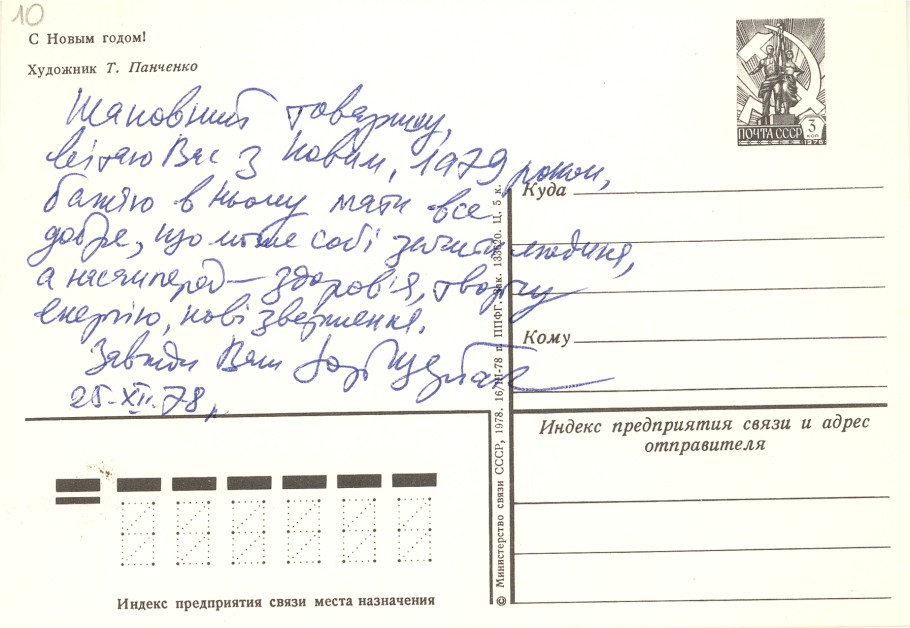 10
С Новым годом!
Художник Т. Панченко
ПОЧТА СССР
3
КОП
1976
Шановний товаришу,
вітаю Вас з Новим, 1979 роком,
бажаю в ньому мати все
добре, що може собі зичити людина,
а насамперед — здоров'я, творчу
енергію, нові звершення.
Завжди Ваш
25-XII-78,
Куда
Кому
Индекс предприятия связи и адрес
отправителя
Индекс предприятия связи места назначения
© Министерство связи СССР, 1978. 16/III-78 г. ППФГ. Зак. Ц. 5 к.